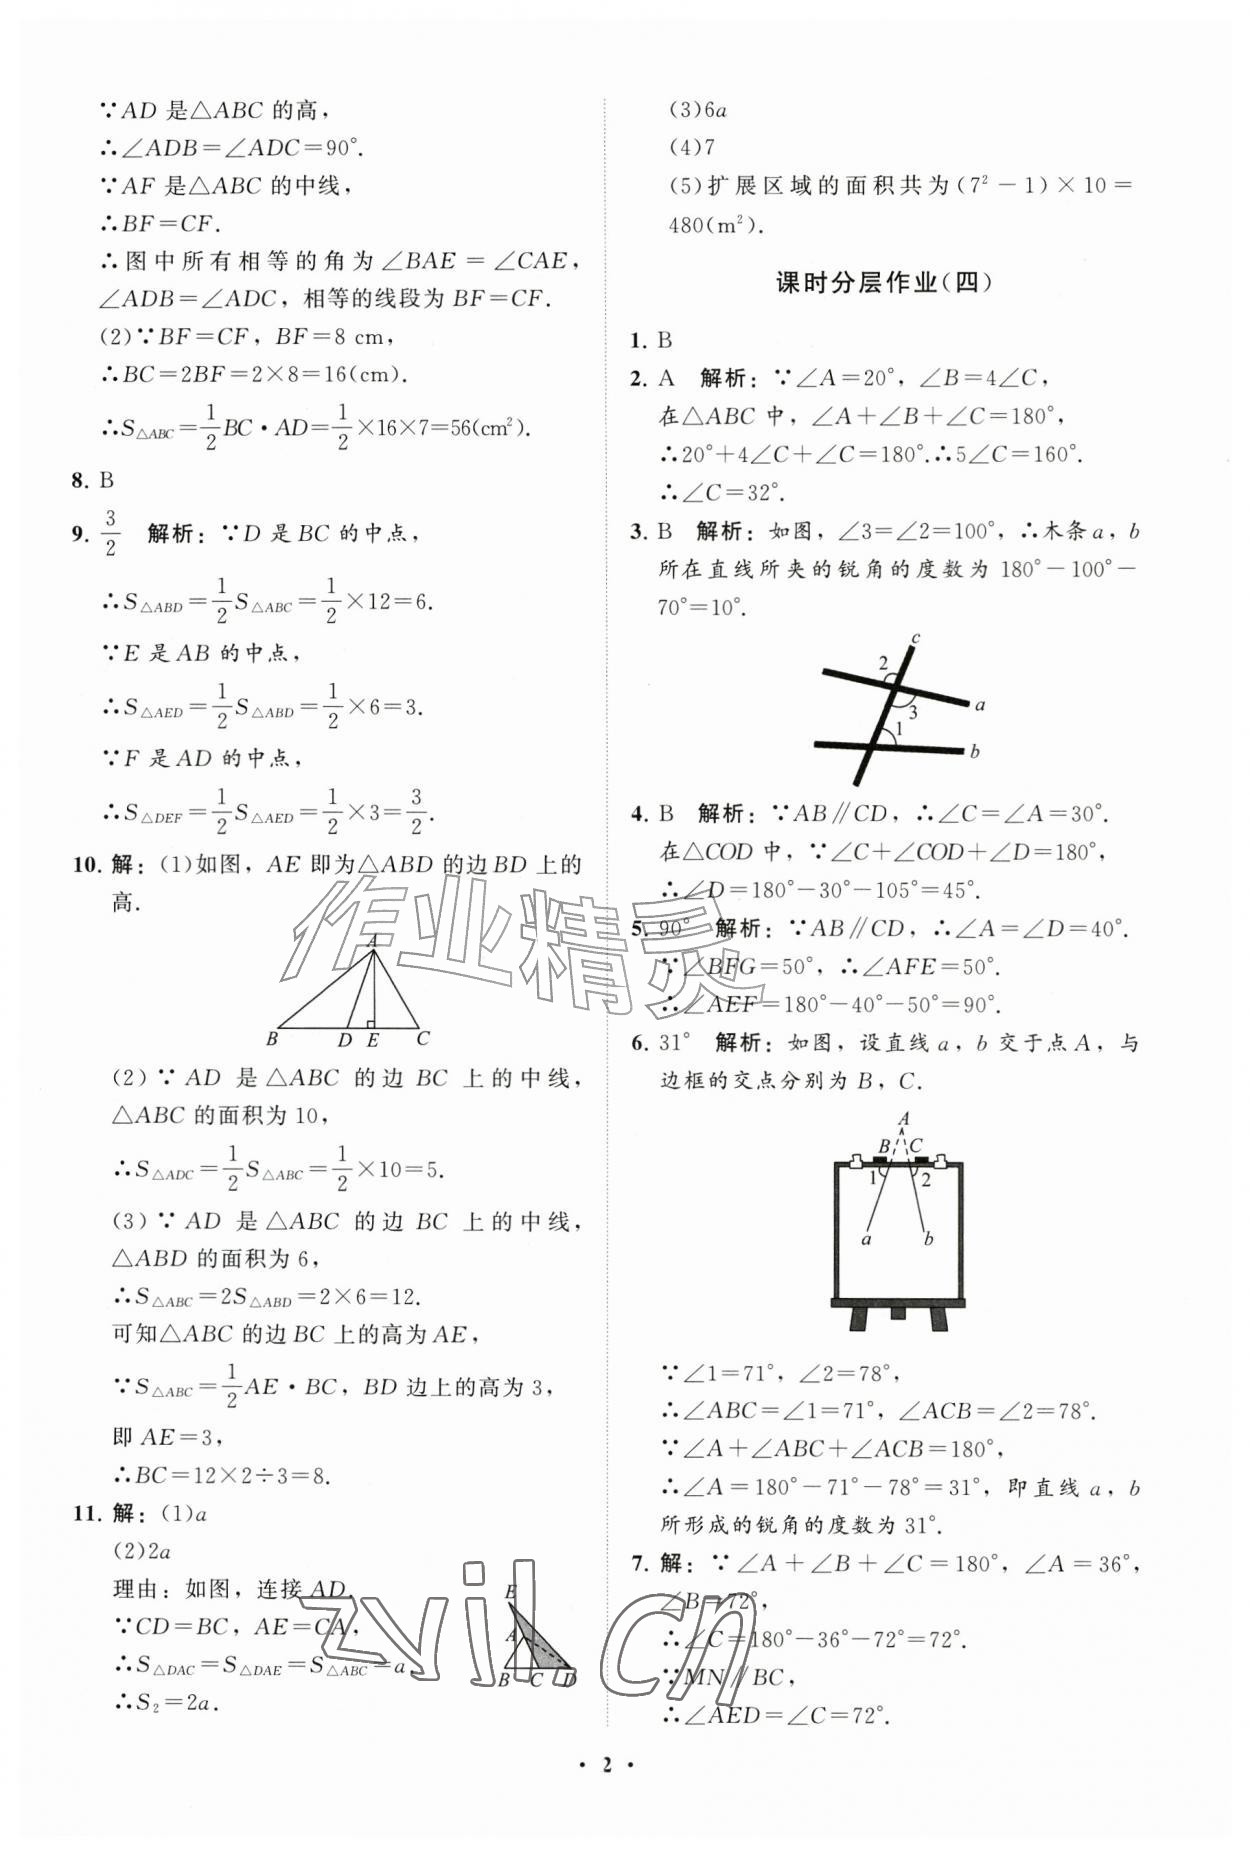 ∵AD是△ABC的高，
∴∠ADB=∠ADC=90°.
∵AF是△ABC的中线，
∴BF=CF.
∴图中所有相等的角为∠BAE=∠CAE，
∠ADB=∠ADC，相等的线段为BF=CF.
(2)∵BF=CF，BF=8 cm，
∴BC=2BF=2×8=16(cm).
∴S△ABC=1/2BC·AD=1/2×16×7=56(cm²).
8. B
9. 3/2 解析：∵D是BC的中点，
∴S△ABD=1/2S△ABC=1/2×12=6.
∵E是AB的中点，
∴S△AED=1/2S△ABD=1/2×6=3.
∵F是AD的中点，
∴S△DEF=1/2S△AED=1/2×3=3/2.
10. 解：(1)如图，AE即为△ABD的边BD上的
高.
A
B D E C
(2)∵AD是△ABC的边BC上的中线，
△ABC的面积为10，
∴S△ADC=1/2S△ABC=1/2×10=5.
(3)∵AD是△ABC的边BC上的中线，
△ABD的面积为6，
∴S△ABC=2S△ABD=2×6=12.
可知△ABC的边BC上的高为AE，
∵S△ABC=1/2AE·BC，BD边上的高为3，
即AE=3，
∴BC=12×2÷3=8.
11. 解：(1)a
(2)2a
理由：如图，连接AD，
∵CD=BC，AE=CA，
∴S△DAC=S△DAE=S△ABC=a，
∴S₂=2a.
E
A
B C D
(3)6a
(4)7
(5)扩展区域的面积共为(7²-1)×10=
480(m²).
课时分层作业(四)
1. B
2. A 解析：∵∠A=20°，∠B=4∠C，
在△ABC中，∠A+∠B+∠C=180°，
∴20°+4∠C+∠C=180°.∴5∠C=160°.
∴∠C=32°.
3. B 解析：如图，∠3=∠2=100°，∴木条a，b
所在直线所夹的锐角的度数为180°-100°-
70°=10°.
c
2
3 a
1
b
4. B 解析：∵AB∥CD，∴∠C=∠A=30°.
在△COD中，∵∠C+∠COD+∠D=180°，
∴∠D=180°-30°-105°=45°.
5. 90° 解析：∵AB∥CD，∴∠A=∠D=40°.
∵∠BFG=50°，∴∠AFE=50°.
∴∠AEF=180°-40°-50°=90°.
6. 31° 解析：如图，设直线a，b交于点A，与
边框的交点分别为B，C.
A
B C
1 2
a b
∵∠1=71°，∠2=78°，
∴∠ABC=∠1=71°，∠ACB=∠2=78°.
∵∠A+∠ABC+∠ACB=180°，
∴∠A=180°-71°-78°=31°，即直线a，b
所形成的锐角的度数为31°.
7. 解：∵∠A+∠B+∠C=180°，∠A=36°，
∠B=72°，
∴∠C=180°-36°-72°=72°.
∵MN∥BC，
∴∠AED=∠C=72°.
· 2 ·
作业精灵
zyjl.cn